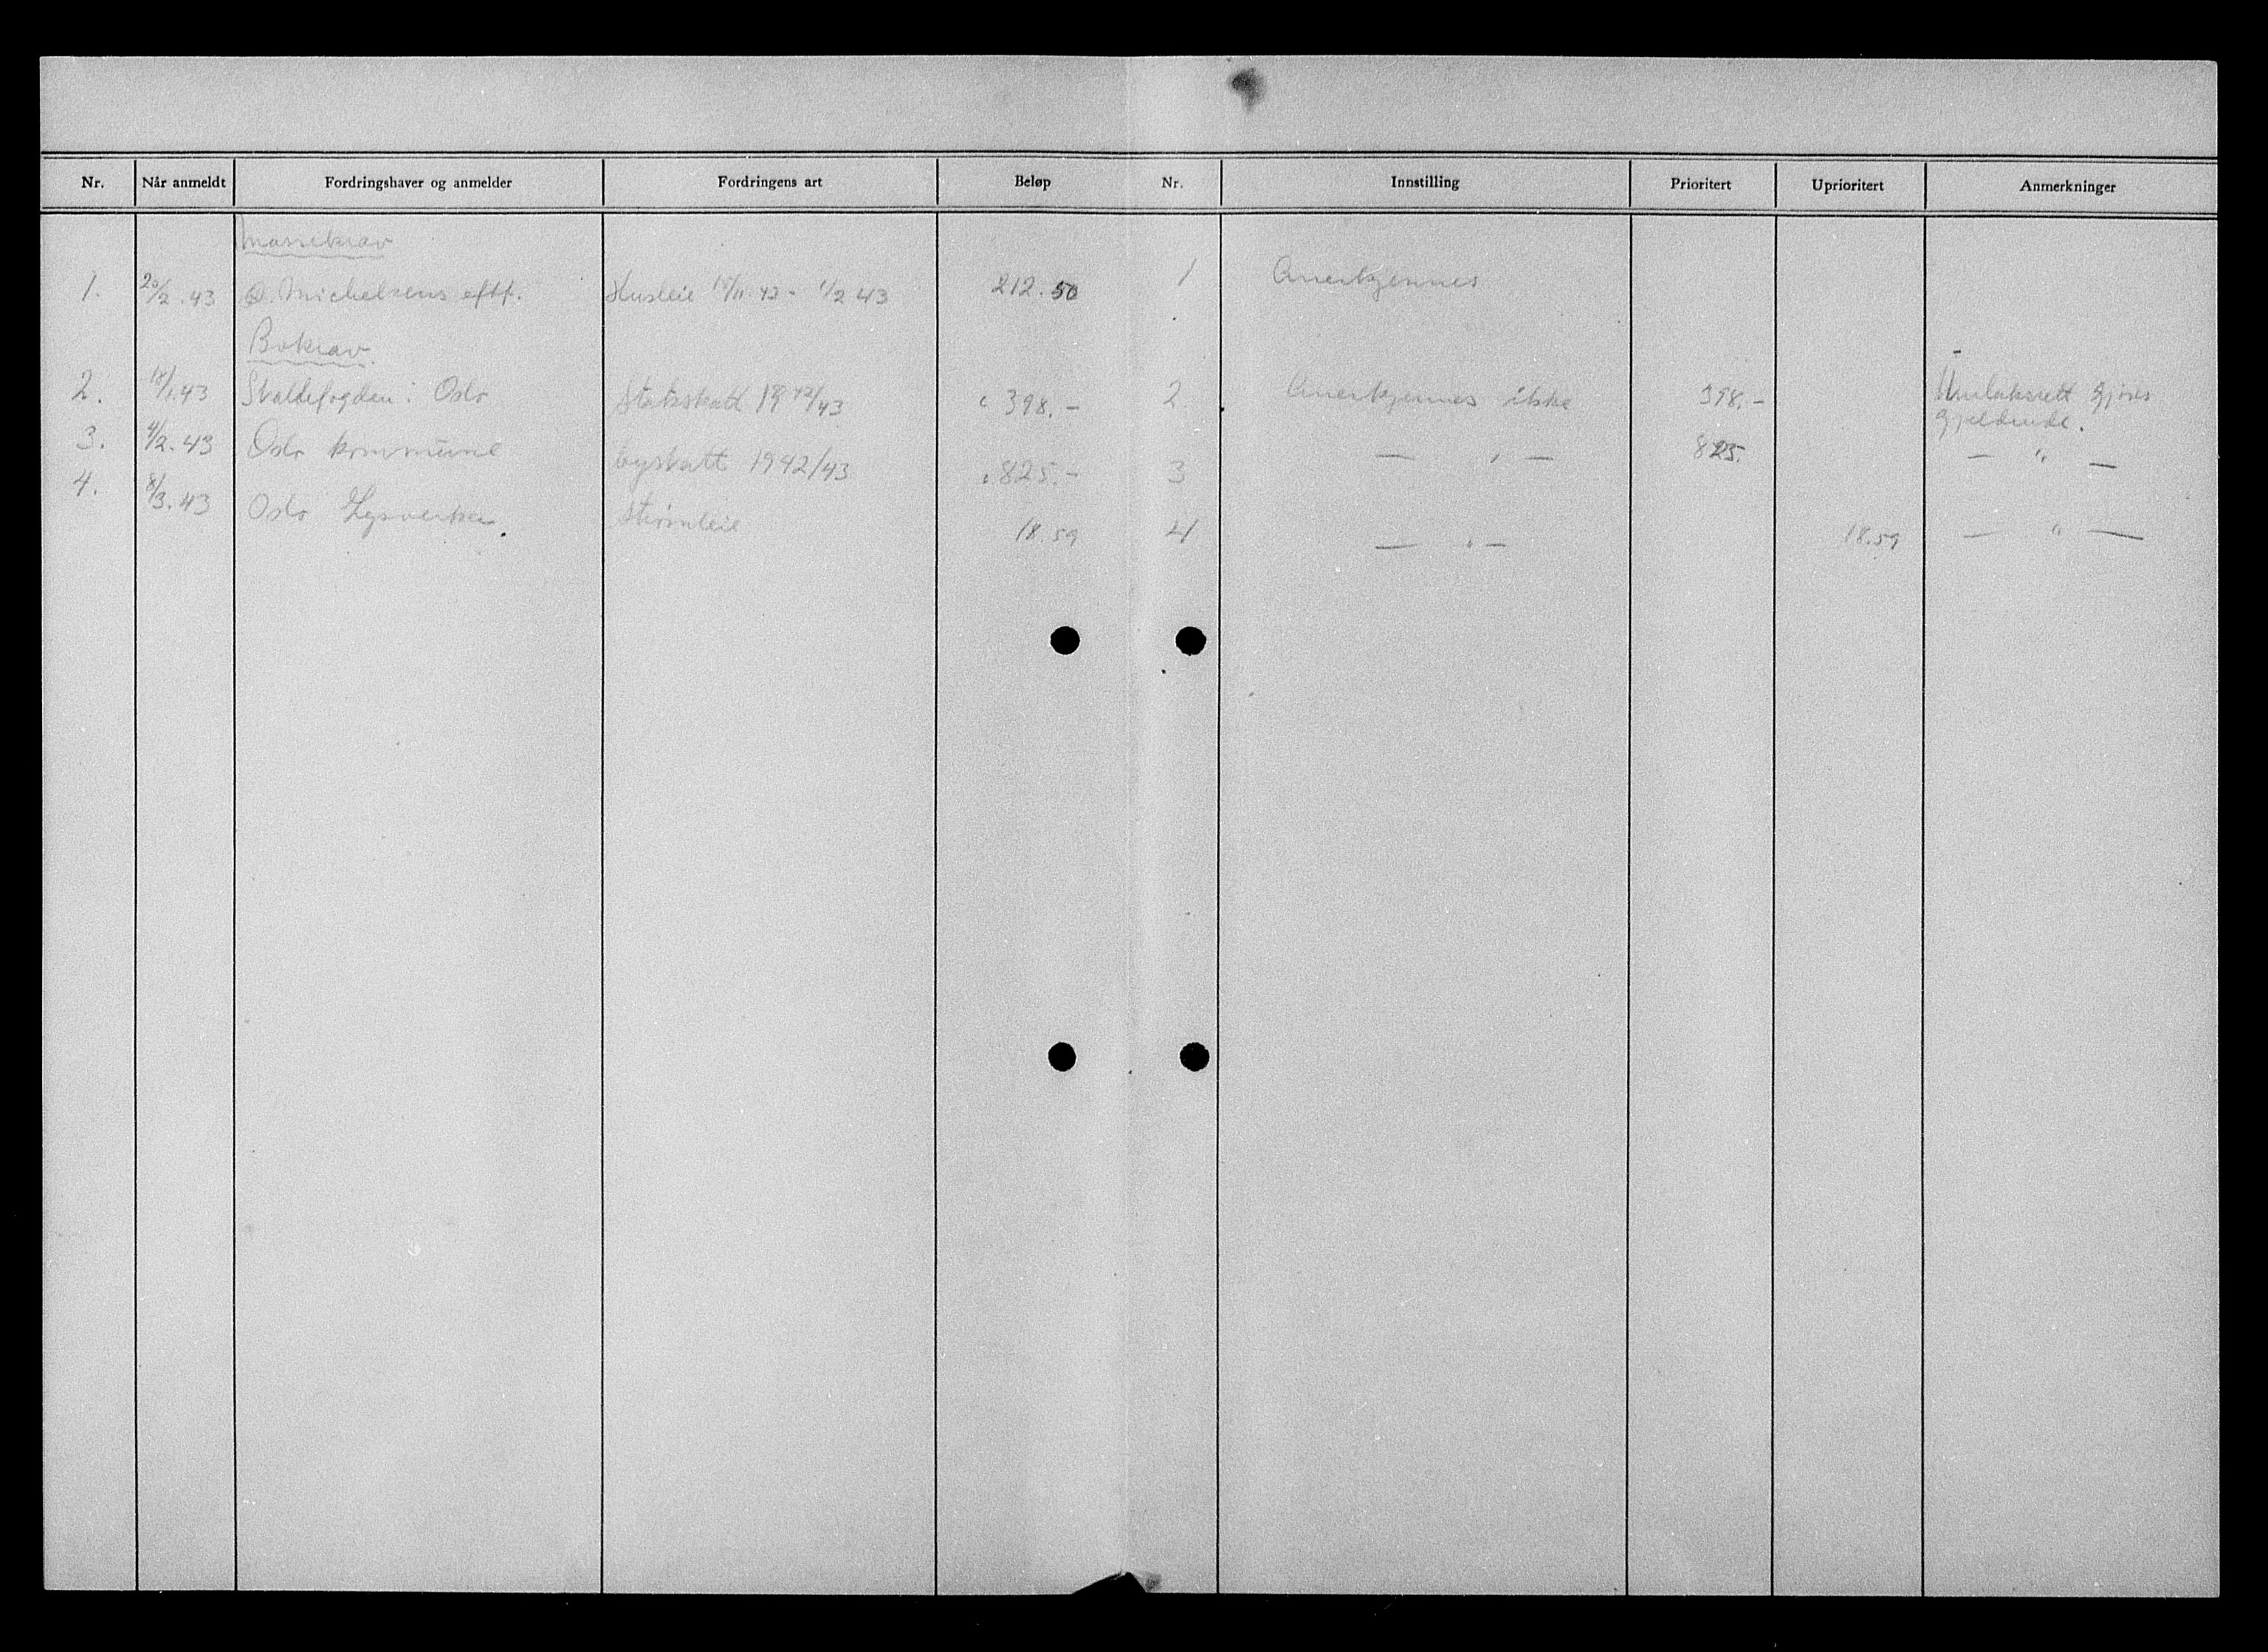 Nr. Når anmeldt Fordringshaver og anmelder Fordringens art Beløp Nr. Innstilling Prioritert Uprioritert Anmerkninger
Massekrav
1. 20/2.43 Michelsens eftf. Husleie 15/11.42 - 1/2 43 212.50 1 Anerkjennes
Bokrav.
2. 43 Skattefogden i Oslo Statsskatt 1942/43 " 398.- 2 Anerkjennes ikke 398.- gjøres
gjeldende.
3. 4/2.43 Oslo kommune byskatt 1942/43 " 825.- 3 — " — 825. — " —
4. 8/3.43 Oslo Lysverker. Strømleie 18.59 4 — " — 18.59 — " —